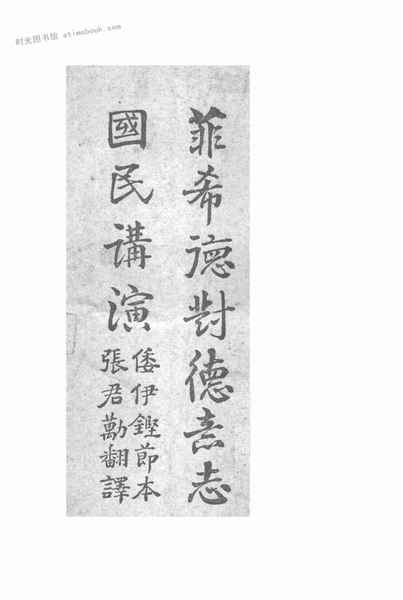 时光图书馆 atimebook.com
菲希德對德意志
國民講演
倭伊鏗節本
張君勱翻譯